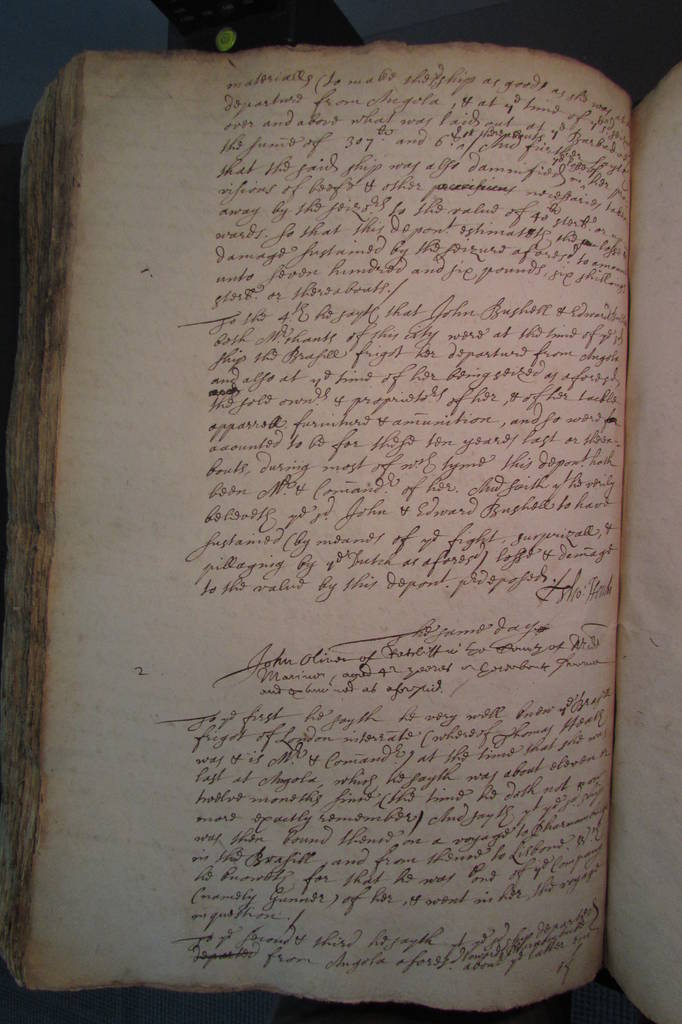 materialls (to make the ship as good as she was
departure from Angola, & at ye time of ye
over and above what was laid out at ye Barbad
the sume of 307 li and 6 s or thereabouts And further
that the said ship was also damnified in her pro
visions of beefe & other necessaries taken
away by the seizrs to the value of 40 li sterl. or
wards. so that this depont estimateth the losse
damage sustained by the seizure aforesd to amount
unto seven hundred and six pounds six shillings
sterl. or thereabouts./
To the 4th he sayth that John Bushell & Edward
both Mrchants of this City were at the time of ye sd
ship the Brasill frigot her departure from Angola
and also at ye time of her being seized as aforesd
the sole ownrs & proprietrs of her, & of her tackle
apparrell furniture & amunition, and so were
accounted to be for these ten yeares last or there
bouts, during most of wch tyme this depont hath
been Mr & Comandr of her. And saith yt he verily
beleiveth ye sd John & Edward Bushell to have
sustained (by meanes of ye fight, surprizall, &
pillaging by ye Dutch as aforesd) losse & damage
to the value by this depont predeposed.
The same day
John Oliver of Ratcliff in ye County of Midd
Mariner, aged 42 yeares or thereabouts sworne
and examined as aforesaid.
2
To ye first he sayth he very well knew ye Brasill
frigot of London interrate (whereof Thomas Heath
was & is Mr & Comandr) at the time that she was
last at Angola, which he sayth was about eleven or
twelve moneths since (the time he doth not
more exactly remember) And sayth yt ye sd ship
was then bound thence on a voyage to Pharnambuco
in the Brasill, and from thence to Lisbone,
he knoweth for that he was one of ye Company
(namely Gunner) of her, & went in her, the voyage
in question./
To ye second & third he sayth yt ye sd ship departed
departed from Angola aforesd towards
about ye latter end